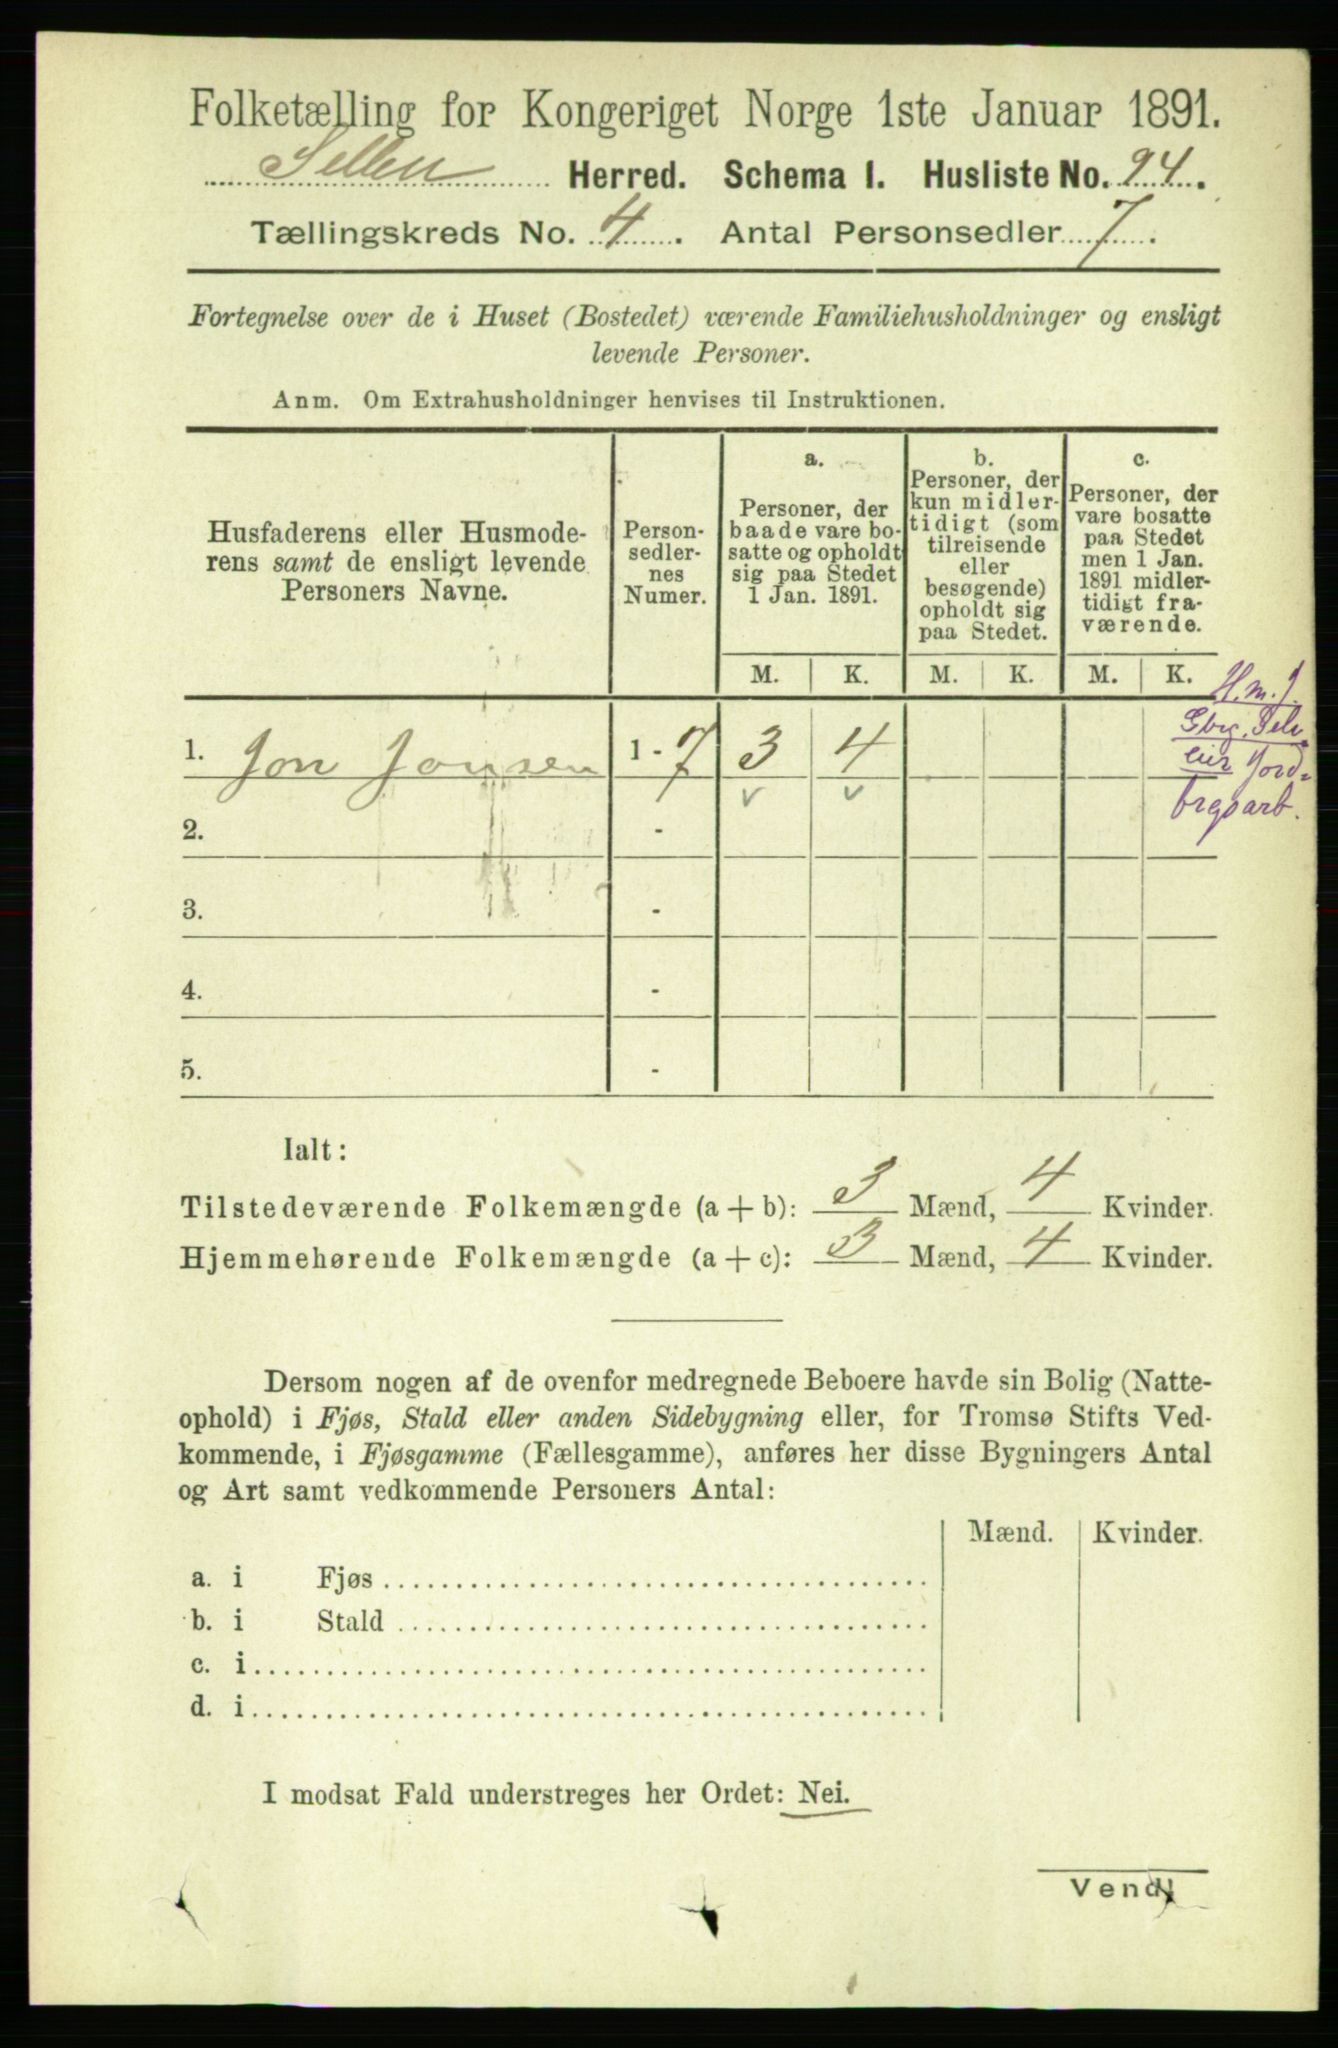 Folketælling for Kongeriget Norge 1ste Januar 1891.
Selbu Herred. Schema I. Husliste No. 94.
Tællingskreds No. 4. Antal Personsedler 7.
Fortegnelse over de i Huset (Bostedet) værende Familiehusholdninger og ensligt
levende Personer.
Anm. Om Extrahusholdninger henvises til Instruktionen.
Husfaderens eller Husmode-
rens samt de ensligt levende
Personers Navne.
Person-
sedler-
nes
Numer.
a.
Personer, der
baade vare bo-
satte og opholdt
sig paa Stedet
1 Jan. 1891.
b.
Personer, der
kun midler-
tidigt (som
tilreisende
eller
besøgende)
opholdt sig
paa Stedet.
c.
Personer, der
vare bosatte
paa Stedet
men 1 Jan.
1891 midler-
tidigt fra-
værende.
M. K. M. K. M. K.
H.m.J.
Gbr. Selv
eier Jord-
brgsarb.
1. Jon Jonsen 1 - 7 3 4
2. -
3. -
4. -
5. -
Ialt:
Tilstedeværende Folkemængde (a + b): 3 Mænd, 4 Kvinder.
Hjemmehørende Folkemængde (a + c): 3 Mænd, 4 Kvinder.
Dersom nogen af de ovenfor medregnede Beboere havde sin Bolig (Natte-
ophold) i Fjøs, Stald eller anden Sidebygning eller, for Tromsø Stifts Ved-
kommende, i Fjøsgamme (Fællesgamme), anføres her disse Bygningers Antal
og Art samt vedkommende Personers Antal:
Mænd. Kvinder.
a. i Fjøs
b. i Stald
c. i
d. i
I modsat Fald understreges her Ordet: Nei.
Vend!